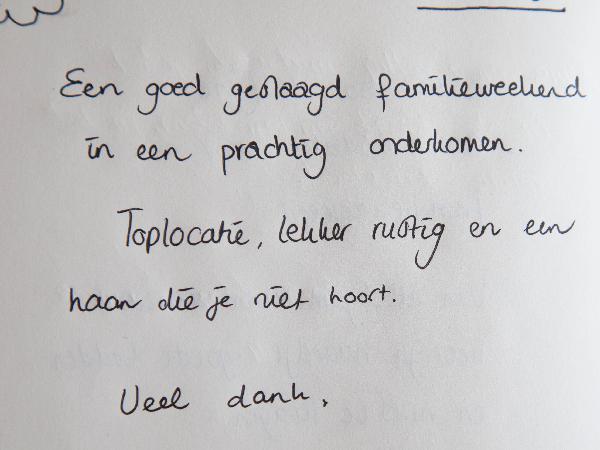 Een goed geslaagd familieweekend
in een prachtig onderkomen.
Toplocatie, lekker rustig en een
haan die je niet hoort.
Veel dank,